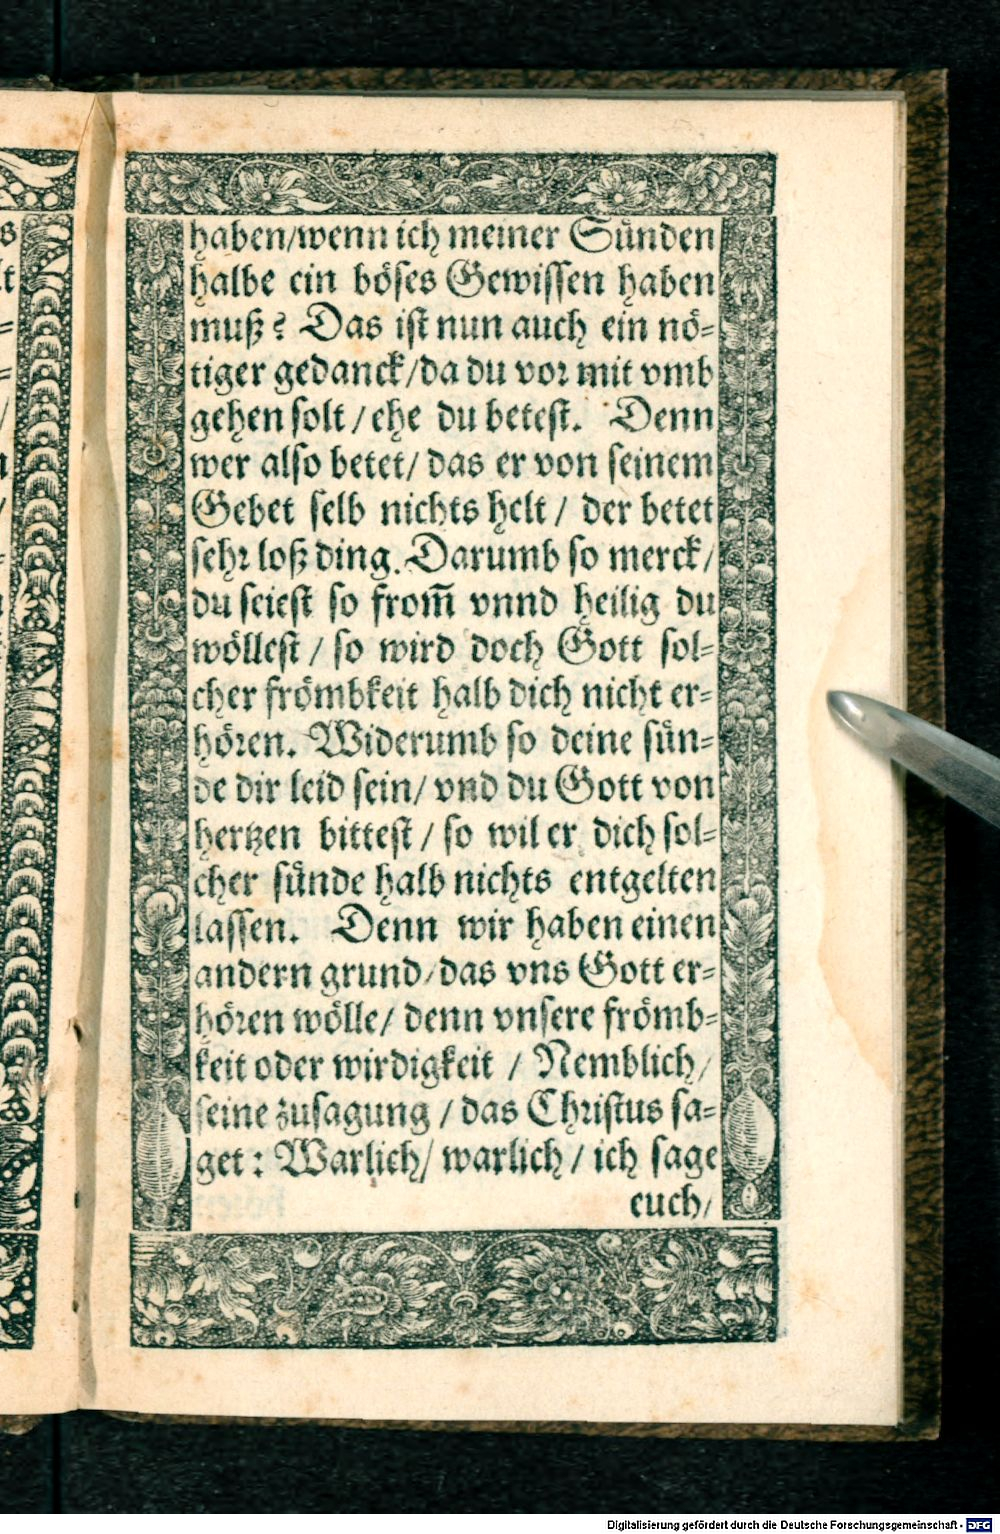 haben/wenn ich meiner Sünden
halbe ein böses Gewissen haben
muß? Das ist nun auch ein nö=
tiger gedanck/da du vor mit vmb
gehen solt/ehe du betest. Denn
wer also betet/das er von seinem
Gebet selb nichts helt/der betet
sehr loß ding. Darumb so merck/
du seiest so from̃ vnnd heilig du
wöllest/so wird doch Gott sol=
cher frömbkeit halb dich nicht er=
hören. Widerumb so deine sün=
de dir leid sein/vnd du Gott von
hertzen bittest/so wil er dich sol=
cher sünde halb nichts entgelten
lassen. Denn wir haben einen
andern grund/das vns Gott er=
hören wölle/denn vnsere frömb=
keit oder wirdigkeit/Nemblich/
seine zusagung/das Christus sa=
get: Warlich/warlich/ich sage
euch/
Digitalisierung gefördert durch die Deutsche Forschungsgemeinschaft - DFG